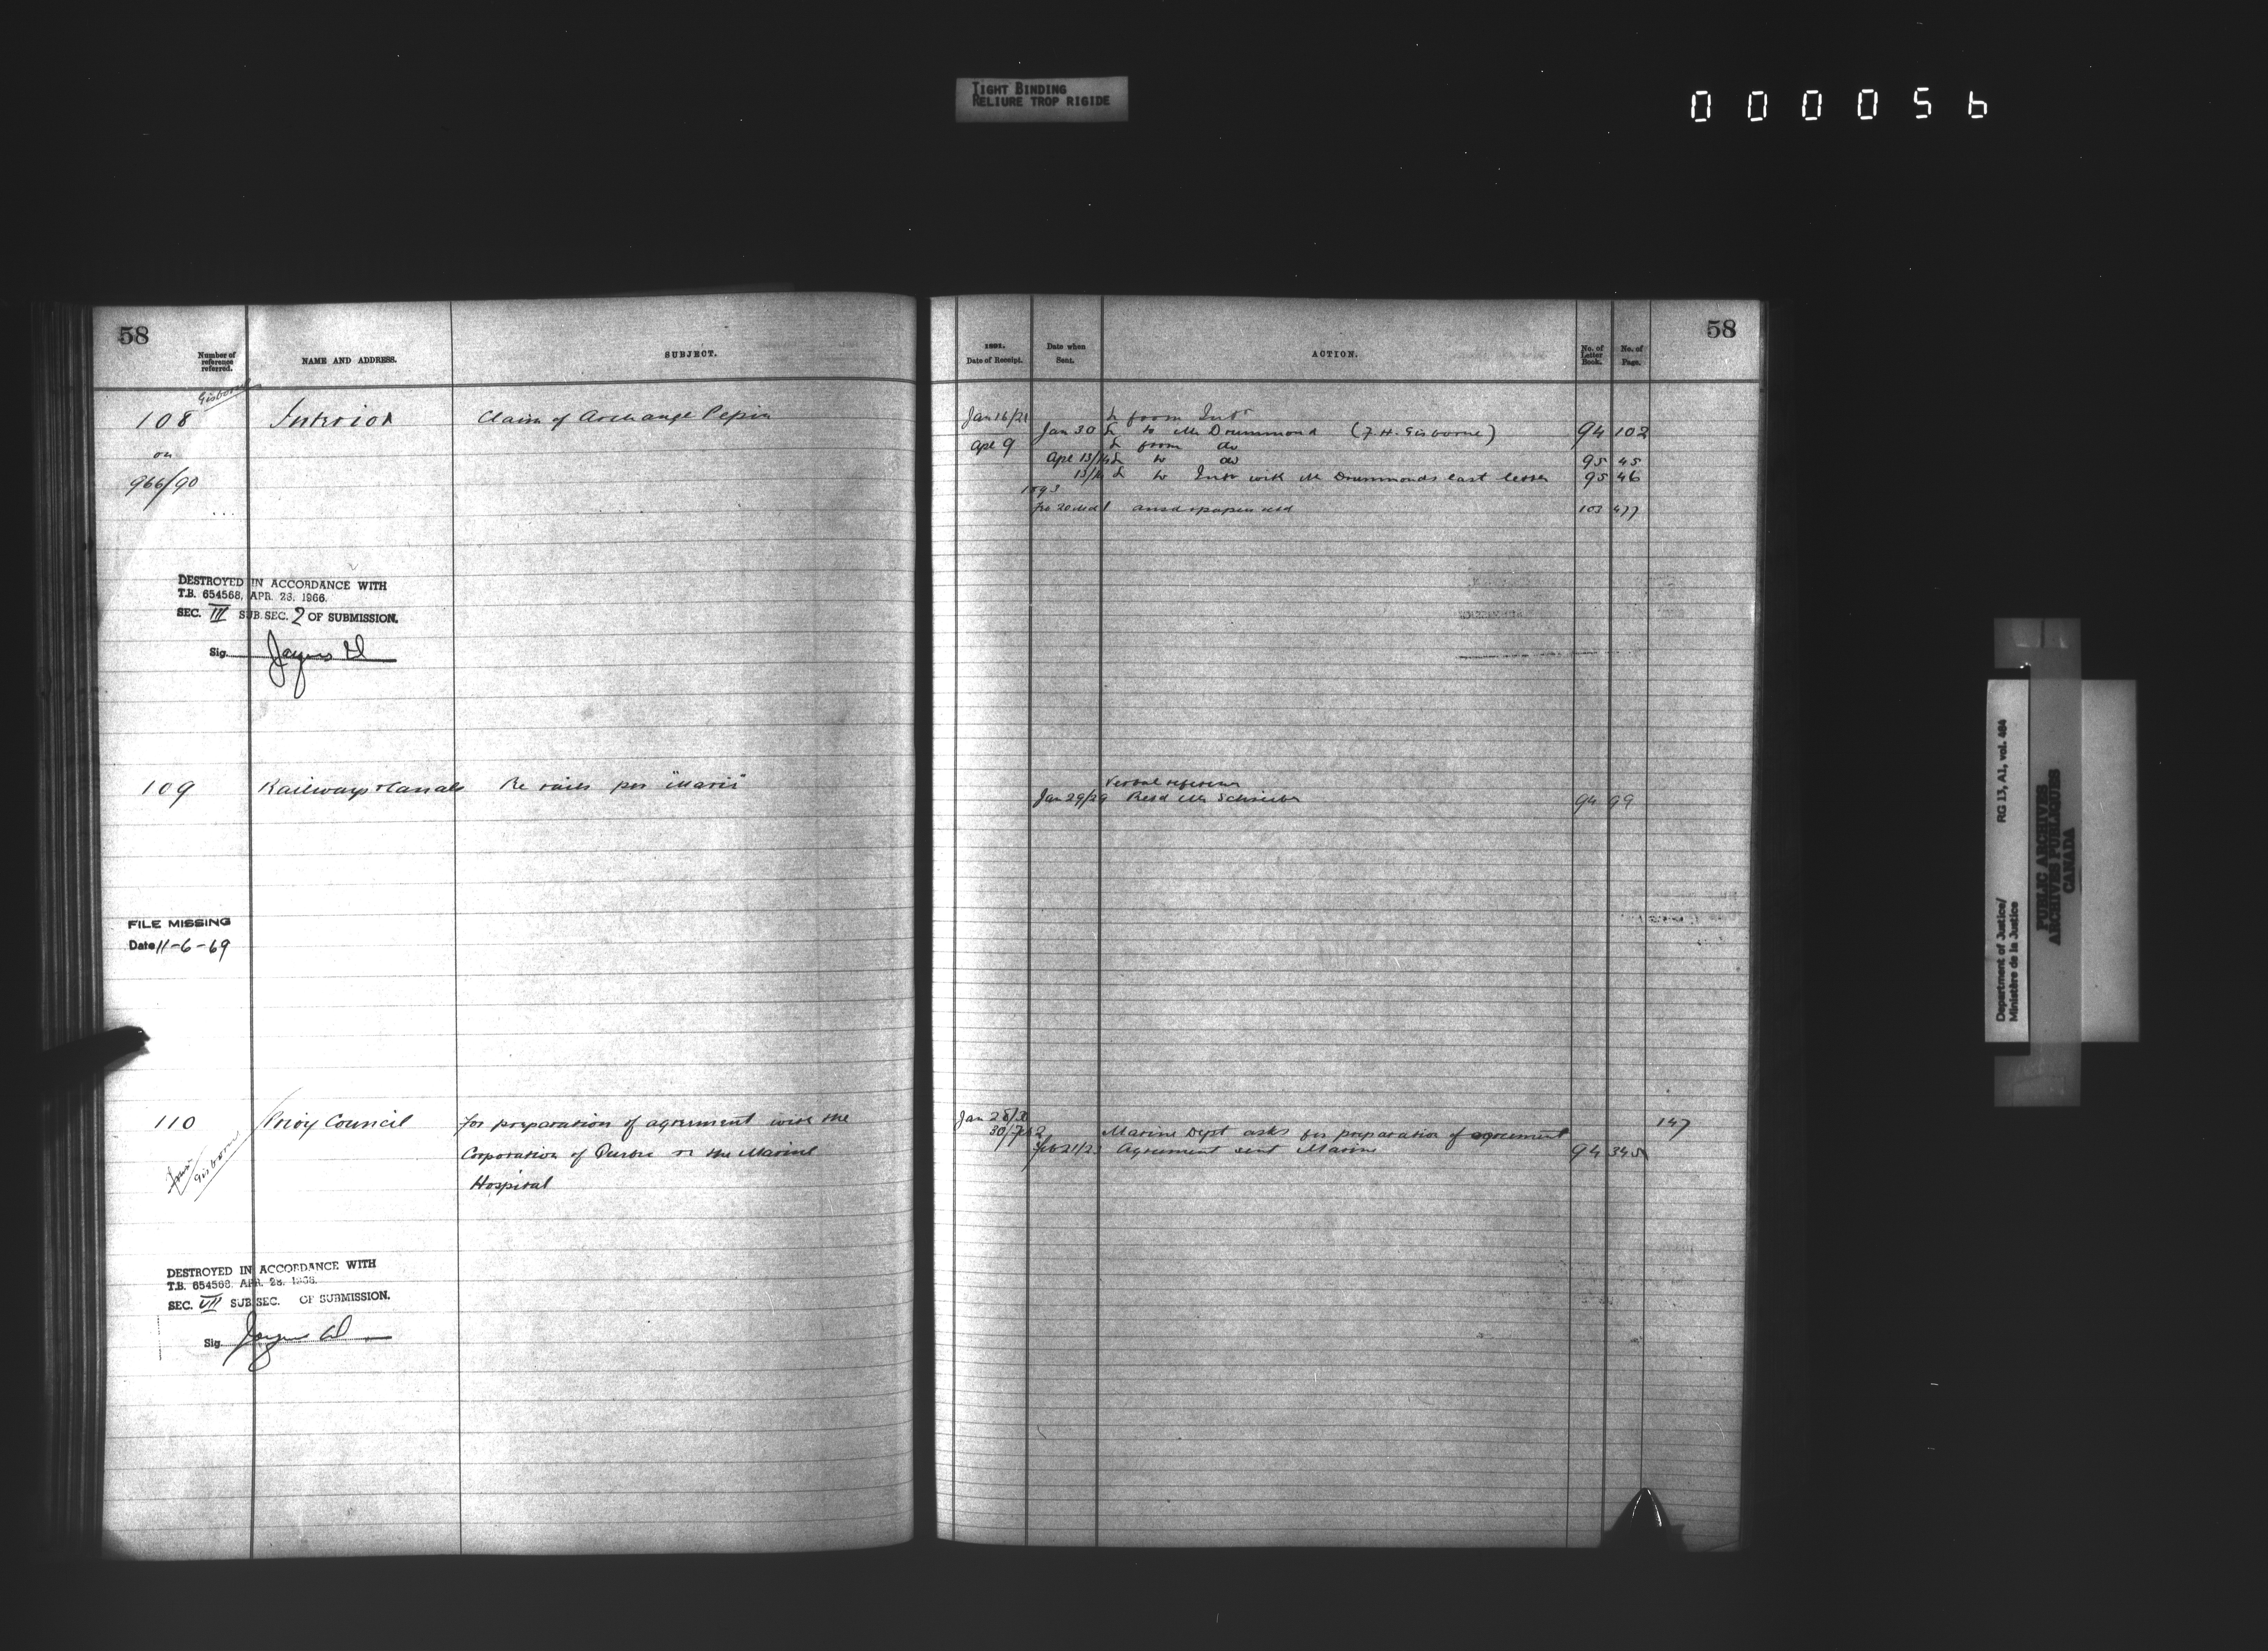 TIGHT BINDING
RELIURE TROP RIGIDE
000056
58
Number of reference referred.
NAME AND ADDRESS.
SUBJECT.
Gisborne
108 Interior Claim of Archange Pepin
on
966/90
DESTROYED IN ACCORDANCE WITH
T.B. 654568, APR. 28, 1966.
SEC. III SUB.SEC. 2 OF SUBMISSION.
Sig.
109 Railways & Canals Re rails per "Maris"
FILE MISSING
Date 11-6-69
110 Privy Council For preparation of agreement with the
Corporation of re the Marine
Hospital
Gisborne
DESTROYED IN ACCORDANCE WITH
T.B. 654568, APR. 28, 1966.
SEC. VII SUB.SEC. OF SUBMISSION.
Sig.
58
1891.
Date of Receipt.
Date when Sent.
ACTION.
No. of Letter Book.
No. of Page.
Jan 16/21 L from Intr
Jan 30 L to Mr Drummond (F.H. Gisborne) 94 102
Apl 9 L from do
Apl 13/14 L to do 95 45
13/14 L to Intr with Mr Drummonds last letter 95 46
1893
103 477
Verbal reference
Jan 29/29 Mr Schreiber 94 99
Jan 28/30
30/Feb 2 Marine Dept asks for preparation of agreement 147
Feb 21/23 Agreement sent Marine 94 345
Department of Justice/ RG 13, A1, vol. 484
Ministère de la Justice
PUBLIC ARCHIVES
ARCHIVES PUBLIQUES
CANADA